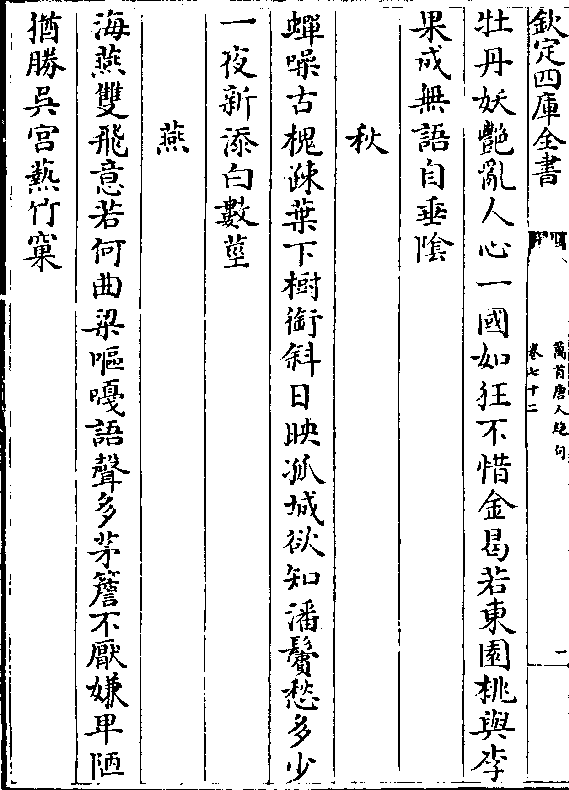 欽定四庫全書
萬首唐人絶句
卷七十二
二
牡丹妖艷亂人心一國如狂不惜金曷若東園桃與李
果成無語自垂隂
秋
蟬噪古槐疎葉下樹銜斜日映孤城欲知潘鬢愁多少
一夜新添白數莖
燕
海燕雙飛意若何曲梁嘔嘎語聲多茅簷不厭嫌卑陋
猶勝吳宫爇竹窠